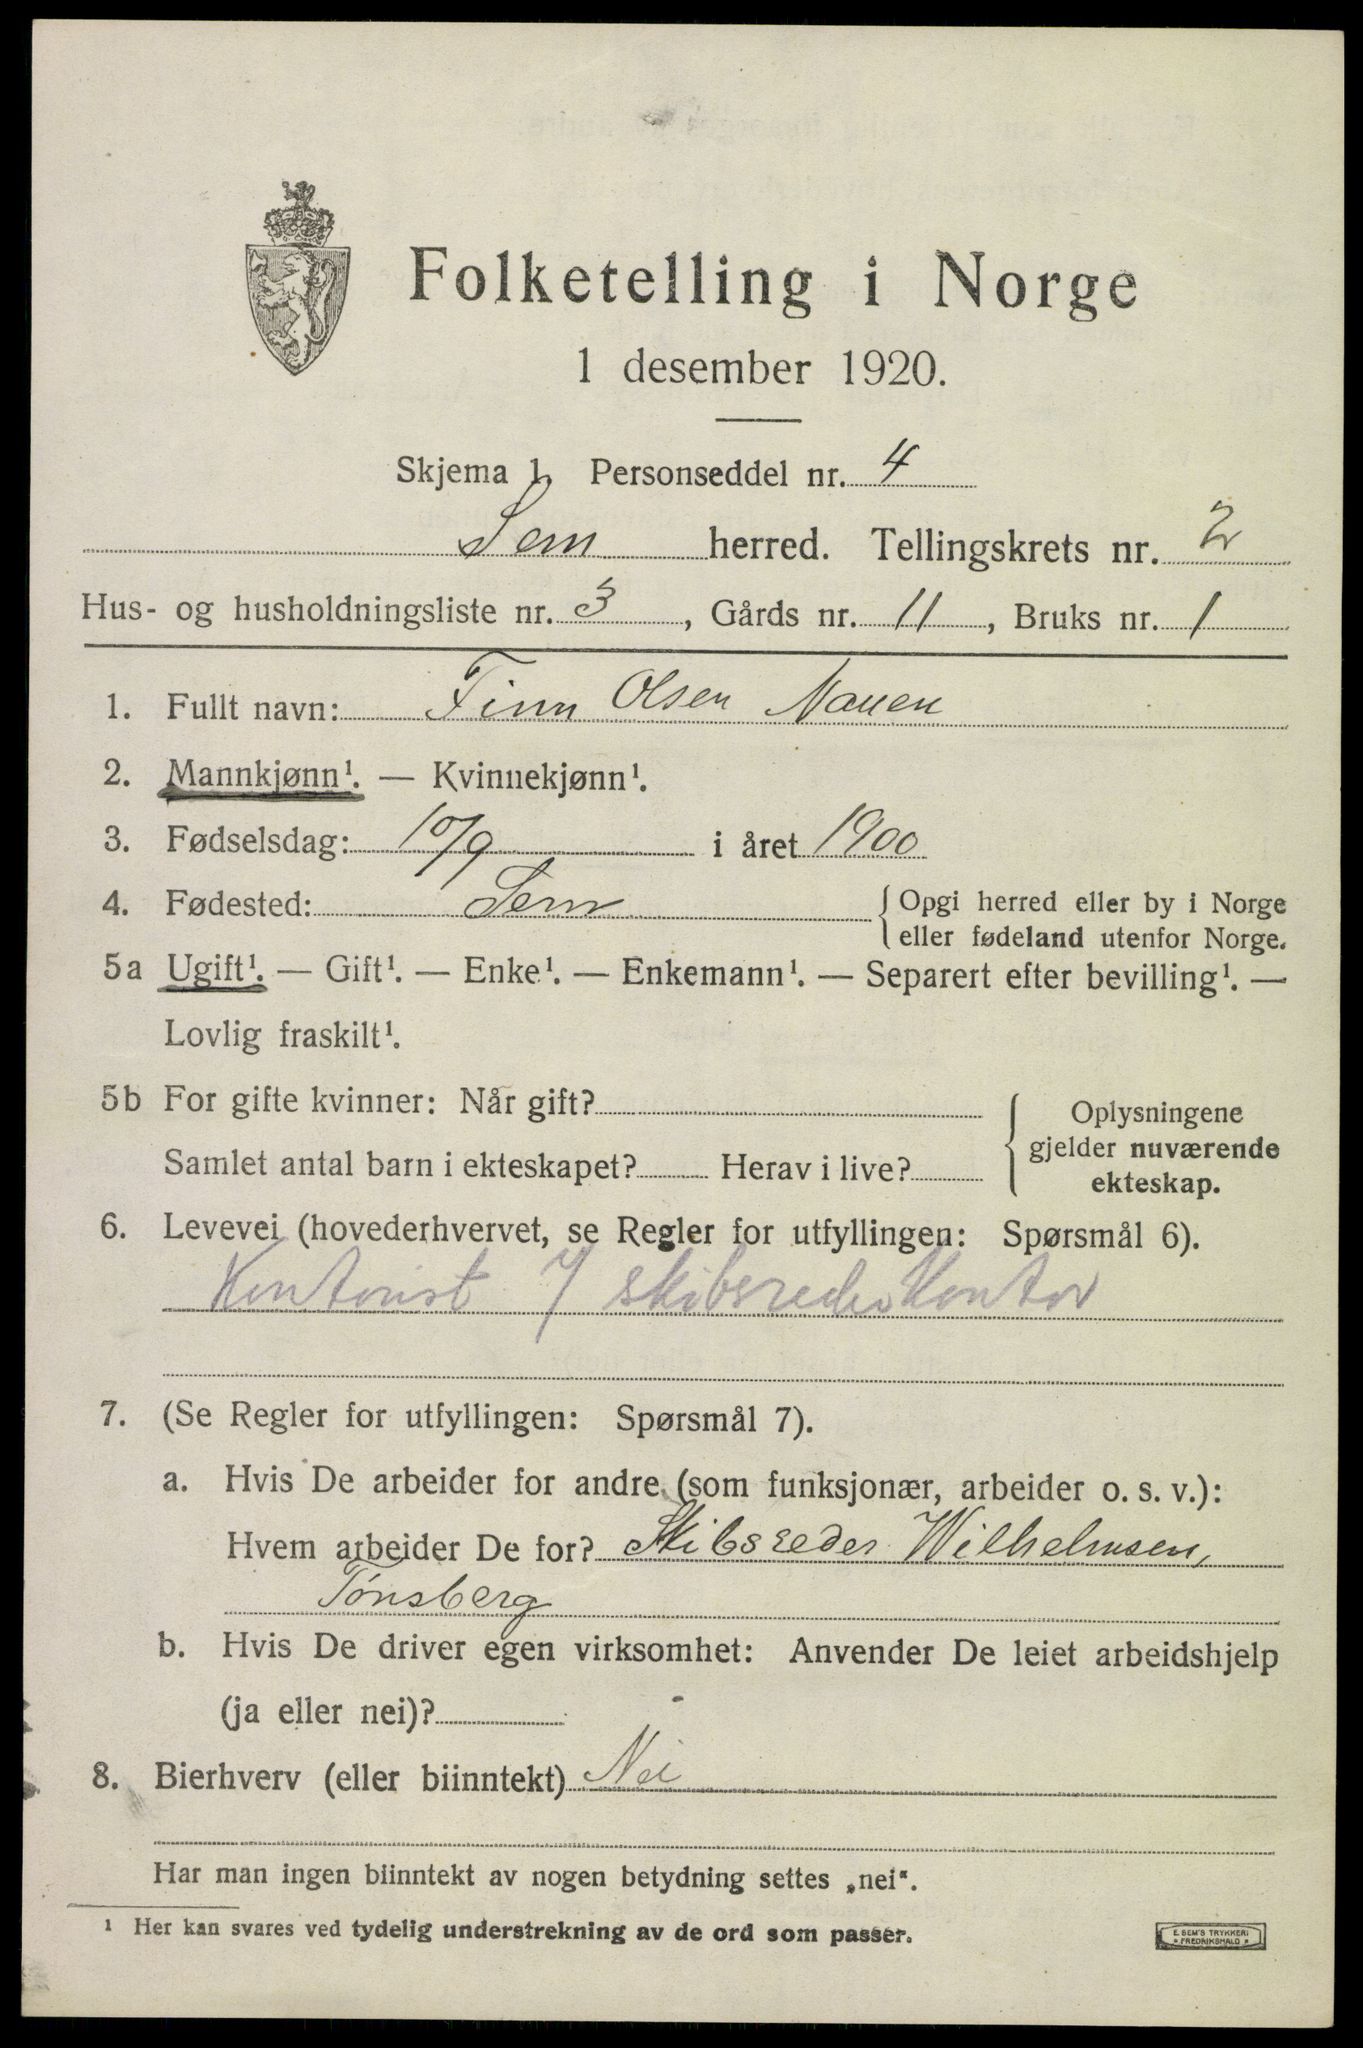 Folketelling i Norge
1 desember 1920.
Skjema 1. Personseddel nr. 4
Sem herred. Tellingskrets nr. 2
Hus- og husholdningsliste nr. 3, Gårds nr. 11, Bruks nr. 1
1. Fullt navn: Finn Olsen Nauen
2. Mannkjønn¹. — Kvinnekjønn¹.
3. Fødselsdag: 10/9 i året 1900
4. Fødested: Sem { Opgi herred eller by i Norge
eller fødeland utenfor Norge.
5a Ugift¹. — Gift¹. — Enke¹. — Enkemann¹. — Separert efter bevilling¹. —
Lovlig fraskilt¹.
5b For gifte kvinner: Når gift? { Oplysningene
gjelder nuværende
Samlet antal barn i ekteskapet? Herav i live?
ekteskap.
6. Levevei (hovederhvervet, se Regler for utfyllingen: Spørsmål 6).
Kontorist / skibsrederkontor
7. (Se Regler for utfyllingen: Spørsmål 7).
a. Hvis De arbeider for andre (som funksjonær, arbeider o. s. v.):
Hvem arbeider De for? Skibsreder Wilhelmsen,
Tønsberg
b. Hvis De driver egen virksomhet: Anvender De leiet arbeidshjelp
(ja eller nei)?
8. Bierhverv (eller biinntekt) Nei
Har man ingen biinntekt av nogen betydning settes „nei“.
¹ Her kan svares ved tydelig understrekning av de ord som passer.
E. SEM'S TRYKKERI
FREDRIKSHALD